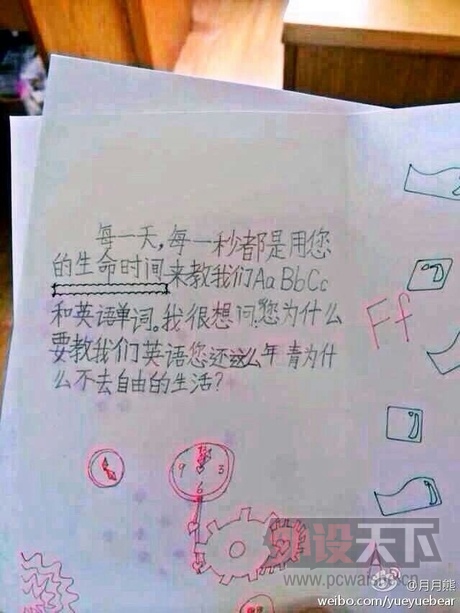 每一天,每一秒都是用您
的生命时间来教我们AaBbCc
和英语单词。我很想问,您为什么
要教我们英语您还这么年青为什
么不去自由的生活?
Ff
9 3
6
外设天下
www.pcwaishe.cn
@月月熊
weibo.com/yueyuebear